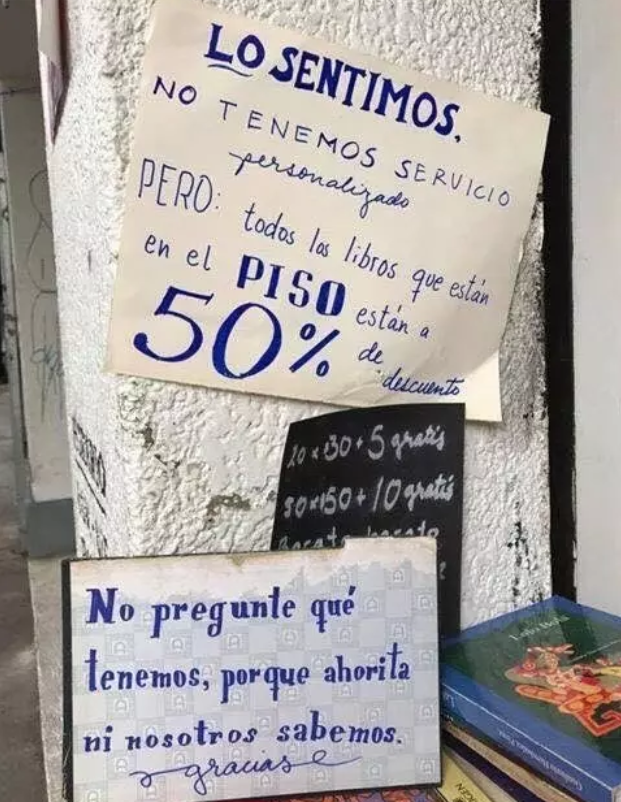 LO SENTIMOS.
NO TENEMOS SERVICIO
personalizado
PERO: todos los libros que están
en el PISO están a
50% de
descuento
20x130+5 gratis
30x150+10 gratis
No pregunte qué
tenemos, porque ahorita
ni nosotros sabemos.
gracias